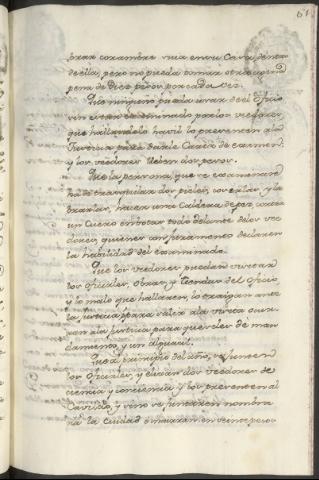 61
brar corambre mia en su Casa dentro
de ella, pero no pueda tomar otra
pena de diez pesos por cada vez.
Que ninguno pueda usar de el oficio
sin estar examinado por los veedores
que hallandolo havil lo presenten a la
Justicia para darle Carta de examen,
y los veedores lleven dos pesos.
Que la persona, que se examinare
ha de trasquilar dos pieles, coserlas, y la
brarlas, hacer una Caldera de pez, cortar
un Cuero embotar todo delante de los vee
dores, quienes con juramento declaren
la habilidad del examinado.
Que los veedores puedan visitar
los oficiales, obras, y tiendas del oficio
y lo malo que hallaren, lo traigan ante
la justicia para salir a la visita ocur
ran a la justicia para que les de man
damiento, y un alguacil.
Que a principio del año, se junten
los oficiales, y elixan dos veedores de
ciencia y conciencia y los presenten al
Cavildo, y sino se juntaren nombra
ra la Ciudad e incurran en veinte pesos